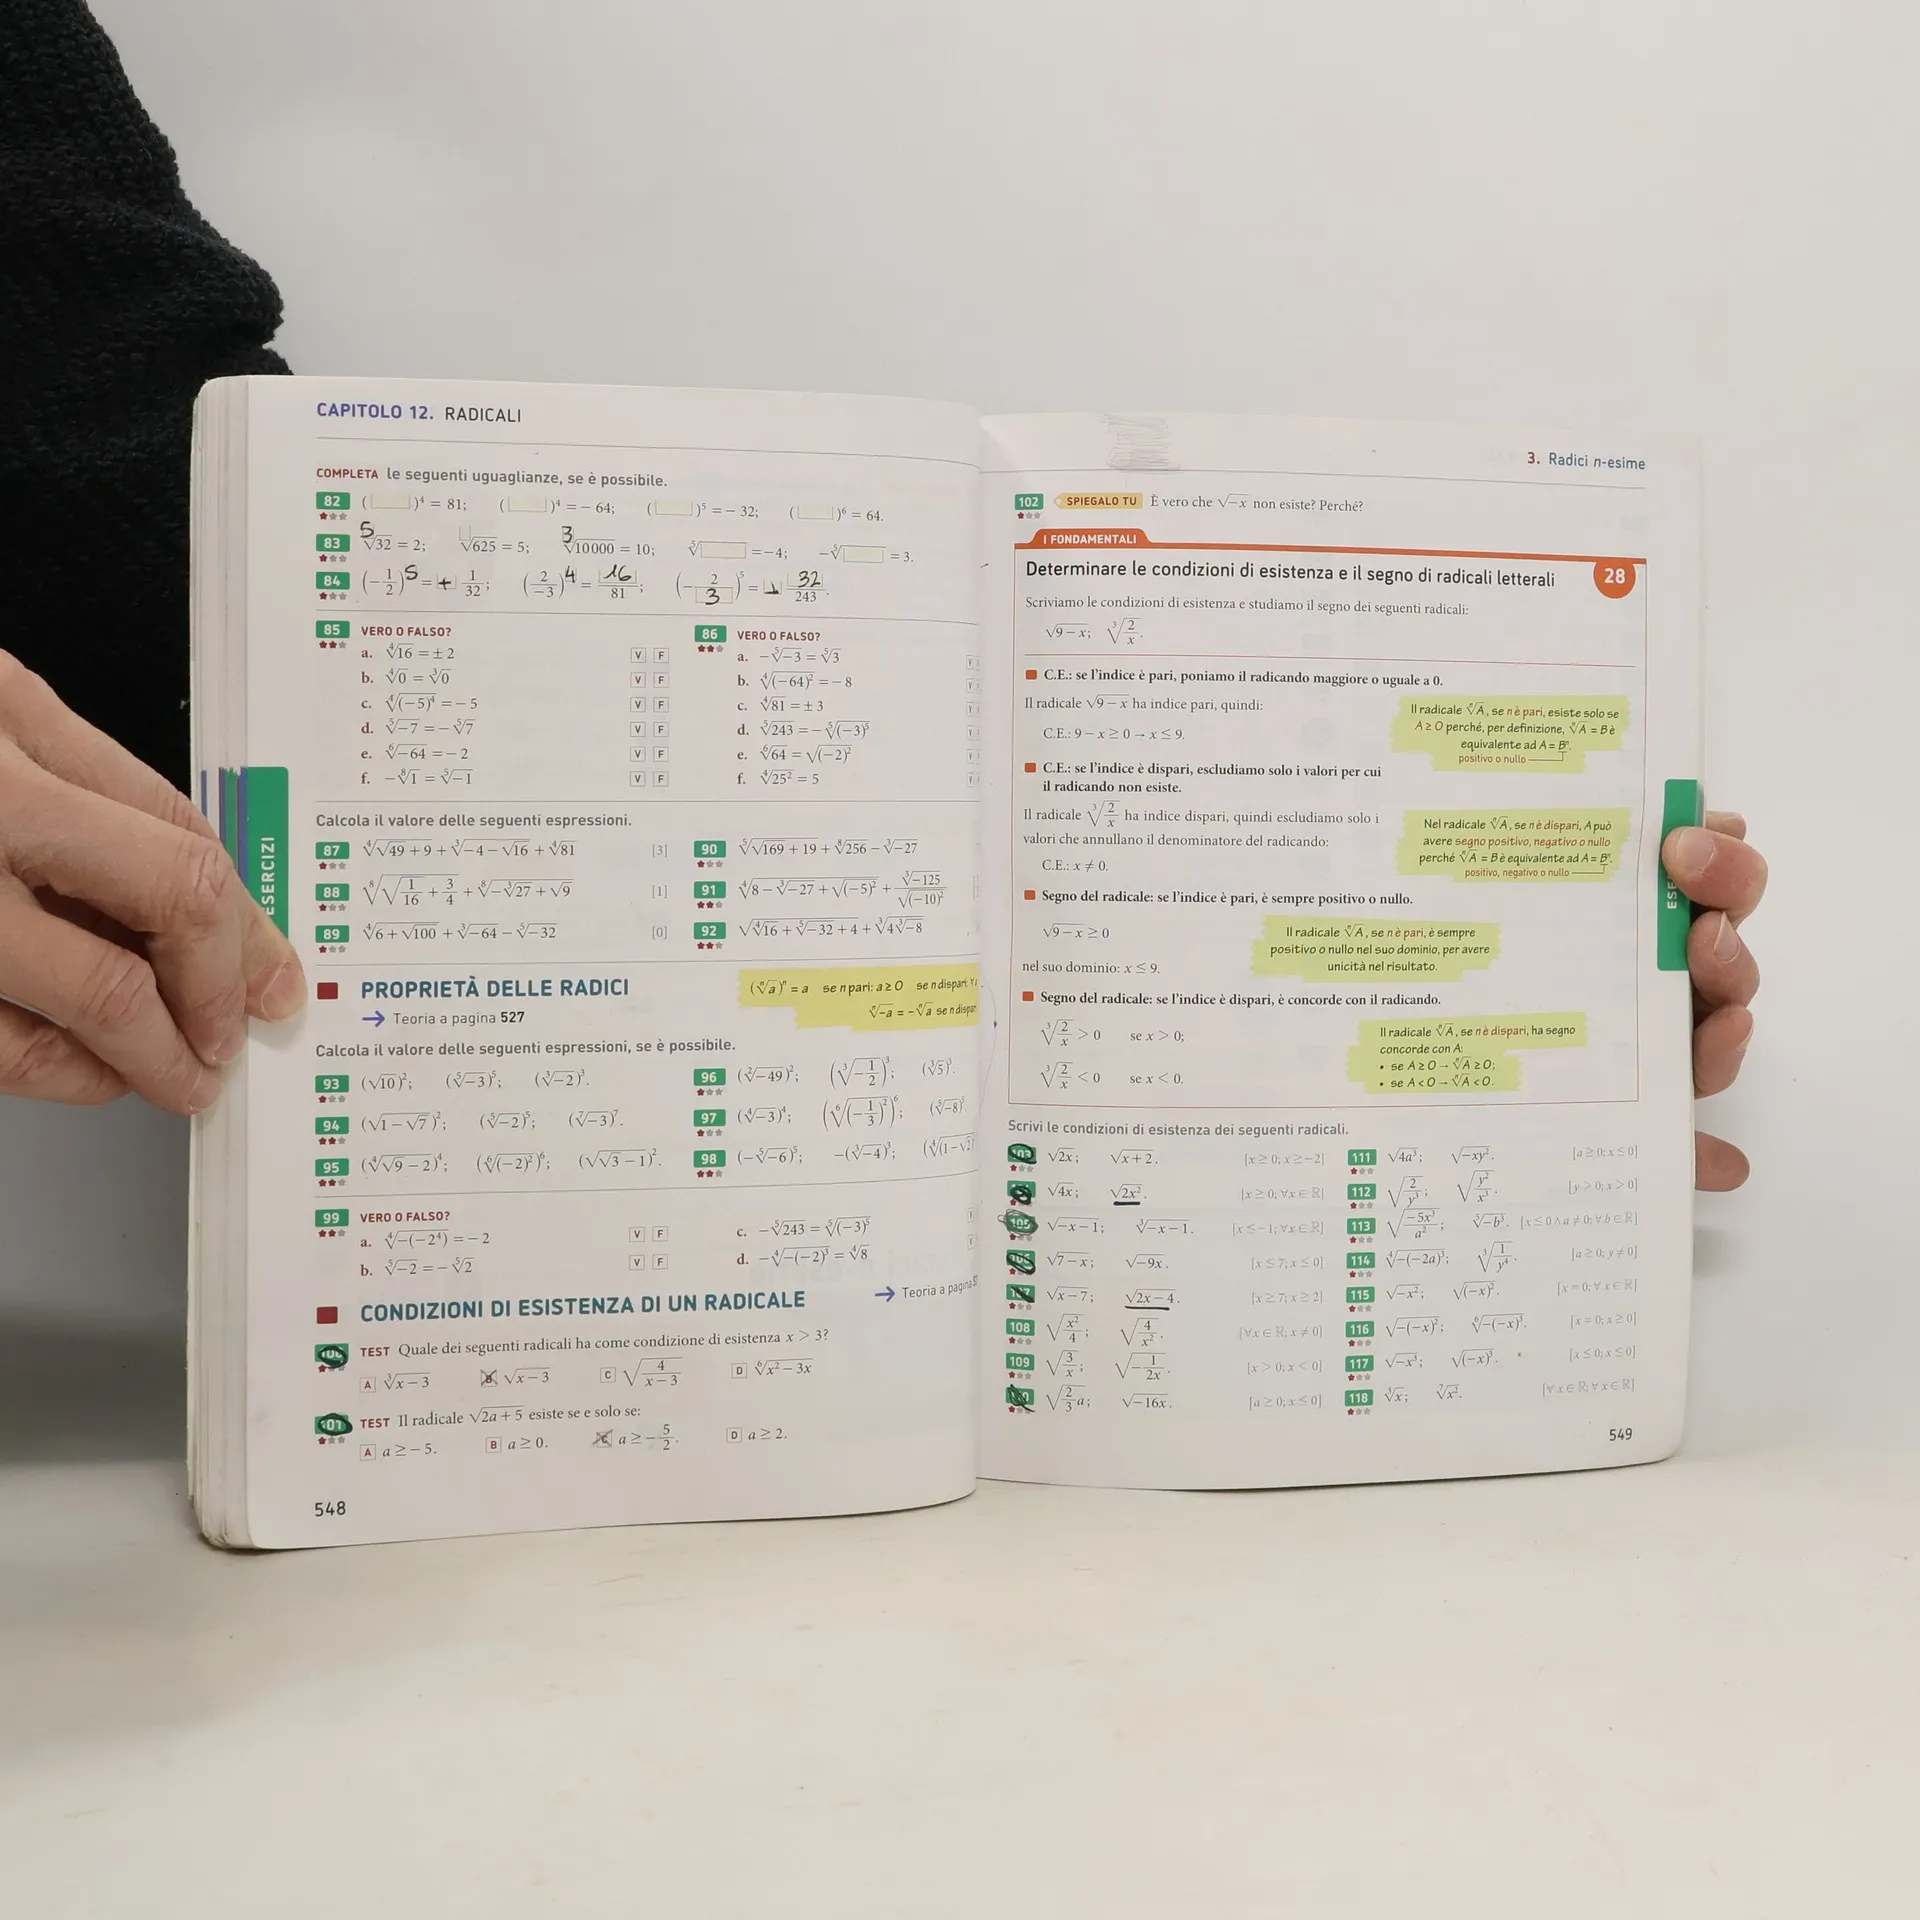 CAPITOLO 12. RADICALI
COMPLETA le seguenti uguaglianze, se è possibile.
82 ( )⁴ = 81; ( )⁴ = − 64; ( )⁵ = − 32; ( )⁶ = 64.
83 ⁵√32 = 2; √625 = 5; ³√10000 = 10; ⁵√ = −4; −⁵√ = 3.
84 (−1/2)⁵ = + 1/32; (2/−3)⁴ = 16/81; (− 2/3)⁵ = 32/243.
85 VERO O FALSO?
a. ⁴√16 = ± 2 V F
b. ⁴√0 = ³√0 V F
c. ⁴√(−5)⁴ = − 5 V F
d. ⁵√−7 = −⁵√7 V F
e. ⁶√−64 = − 2 V F
f. −⁸√1 = ⁵√−1 V F
86 VERO O FALSO?
a. −⁵√−3 = ⁵√3
b. ⁴√(−64)² = − 8
c. ⁴√81 = ± 3
d. ⁵√243 = −⁵√(−3)⁵
e. ⁶√64 = √(−2)²
f. ⁴√25² = 5
Calcola il valore delle seguenti espressioni.
87 ⁴√(√49 + 9) + ³√(−4 − √16) + ⁴√81 [3]
88 ⁸√(√(1/16) + 3/4) + ⁸√(−³√27 + √9) [1]
89 ⁴√(6 + √100) + ³√−64 − ⁵√−32 [0]
90 ⁵√(√169 + 19) + ⁸√256 − ³√−27
91 ⁴√(8 − ³√−27 + √(−5)²) + ³√−125/√(−10)²
92 √(⁴√16 + ⁵√−32 + 4) + ³√(4³√−8)
PROPRIETÀ DELLE RADICI
→ Teoria a pagina 527
(ⁿ√a)ⁿ = a se n pari: a ≥ 0 se n dispari:
ⁿ√−a = −ⁿ√a se n dispari
Calcola il valore delle seguenti espressioni, se è possibile.
93 (√10)²; (⁵√−3)⁵; (³√−2)³.
94 (√1 − √7)²; (⁵√−2)⁵; (⁷√−3)⁷.
95 (⁴√(√9 − 2))⁴; (⁶√(−2)²)⁶; (√(√3 − 1))².
96 (²√−49)²; (³√−1/2)³; (³√5)³.
97 (⁴√−3)⁴; (⁶√(−1/3)²)⁶; (⁵√−8)
98 (−⁵√−6)⁵; −(³√−4)³; (⁴√(1 − √2)
99 VERO O FALSO?
a. ⁴√−(−2⁴) = − 2 V F
b. ⁵√−2 = −⁵√2 V F
c. −⁵√243 = ⁵√(−3)⁵
d. −⁴√−(−2)³ = ⁴√8
→ Teoria a pagina
CONDIZIONI DI ESISTENZA DI UN RADICALE
100 TEST Quale dei seguenti radicali ha come condizione di esistenza x > 3?
A ³√x − 3 B √x − 3 C √(4/(x − 3)) D ⁶√x² − 3x
101 TEST Il radicale √2a + 5 esiste se e solo se:
A a ≥ − 5. B a ≥ 0. C a ≥ −5/2. D a ≥ 2.
548
ESERCIZI
3. Radici n-esime
102 SPIEGALO TU È vero che √−x non esiste? Perché?
I FONDAMENTALI
Determinare le condizioni di esistenza e il segno di radicali letterali 28
Scriviamo le condizioni di esistenza e studiamo il segno dei seguenti radicali:
√9 − x; ³√(2/x).
C.E.: se l'indice è pari, poniamo il radicando maggiore o uguale a 0.
Il radicale √9 − x ha indice pari, quindi:
C.E.: 9 − x ≥ 0 → x ≤ 9.
Il radicale ⁿ√A, se n è pari, esiste solo se
A ≥ 0 perché, per definizione, ⁿ√A = B è
equivalente ad A = Bⁿ.
positivo o nullo
C.E.: se l'indice è dispari, escludiamo solo i valori per cui
il radicando non esiste.
Il radicale ³√(2/x) ha indice dispari, quindi escludiamo solo i
valori che annullano il denominatore del radicando:
C.E.: x ≠ 0.
Nel radicale ⁿ√A, se n è dispari, A può
avere segno positivo, negativo o nullo
perché ⁿ√A = B è equivalente ad A = Bⁿ.
positivo, negativo o nullo
Segno del radicale: se l'indice è pari, è sempre positivo o nullo.
√9 − x ≥ 0
nel suo dominio: x ≤ 9.
Il radicale ⁿ√A, se n è pari, è sempre
positivo o nullo nel suo dominio, per avere
unicità nel risultato.
Segno del radicale: se l'indice è dispari, è concorde con il radicando.
³√(2/x) > 0 se x > 0;
³√(2/x) < 0 se x < 0.
Il radicale ⁿ√A, se n è dispari, ha segno
concorde con A:
• se A ≥ 0 → ⁿ√A ≥ 0;
• se A < 0 → ⁿ√A < 0.
Scrivi le condizioni di esistenza dei seguenti radicali.
103 √2x; √x + 2. [x ≥ 0; x ≥ −2]
√4x; √2x². [x ≥ 0; ∀x ∈ ℝ]
105 √−x − 1; ³√−x − 1. [x ≤ −1; ∀x ∈ ℝ]
106 √7 − x; √−9x. [x ≤ 7; x ≤ 0]
107 √x − 7; √2x − 4. [x ≥ 7; x ≥ 2]
108 √(x²/4); √(4/x²). [∀x ∈ ℝ; x ≠ 0]
109 √(3/x); √(−1/2x). [x > 0; x < 0]
110 √(2/3 a); √−16x. [a ≥ 0; x ≤ 0]
111 √4a³; √−xy². [a ≥ 0; x ≤ 0]
112 √(2/y³); √(y²/x³). [y > 0; x > 0]
113 √(−5x³/a²); ⁵√−b³. [x ≤ 0 ∧ a ≠ 0; ∀b ∈ ℝ]
114 ⁴√−(−2a)³; ³√(1/y⁴). [a ≥ 0; y ≠ 0]
115 √−x²; √(−x)². [x = 0; ∀x ∈ ℝ]
116 √−(−x)²; ⁶√−(−x)³. [x = 0; x ≥ 0]
117 √−x³; √(−x)³. [x ≤ 0; x ≤ 0]
118 ³√x; ⁷√x². [∀x ∈ ℝ; ∀x ∈ ℝ]
549
ESE